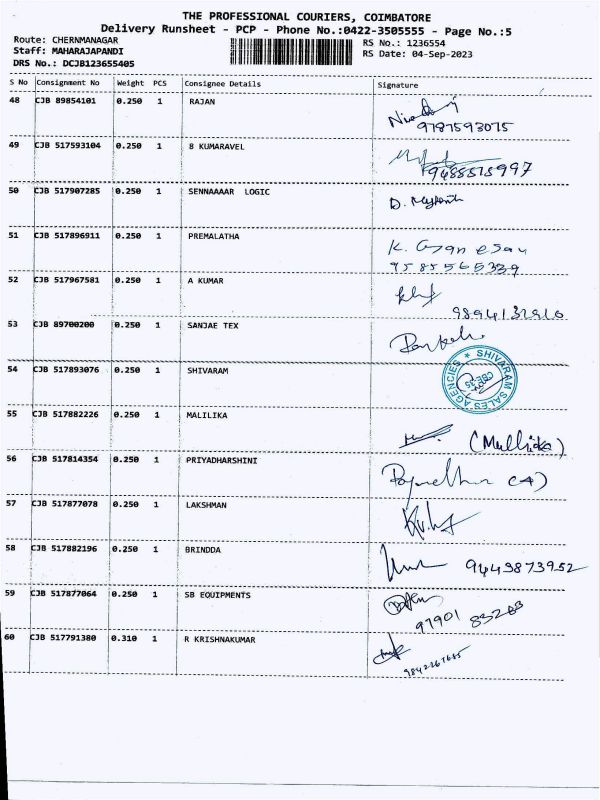 THE PROFESSIONAL COURIERS, COIMBATORE
Delivery Runsheet - PCP - Phone No.:0422-3505555 - Page No.:5
Route: CHERNMANAGAR RS No.: 1236554
Staff: MAHARAJAPANDI RS Date: 04-Sep-2023
DRS No.: DCJB123655405
S No Consignment No Weight PCS Consignee Details Signature
48 CJB 89854101 0.250 1 RAJAN
9787593075
49 CJB 517593104 0.250 1 B KUMARAVEL
9488515997
50 CJB 517907285 0.250 1 SENNAAAAR LOGIC
51 CJB 517896911 0.250 1 PREMALATHA K. Gyan esan
9585565339
52 CJB 517967581 0.250 1 A KUMAR
9894132910
53 CJB 89700200 0.250 1 SANJAE TEX
54 CJB 517893076 0.250 1 SHIVARAM SHIVARAM SALES AGENCIES
55 CJB 517882226 0.250 1 MALILIKA (Mullika)
56 CJB 517814354 0.250 1 PRIYADHARSHINI
57 CJB 517877078 0.250 1 LAKSHMAN
58 CJB 517882196 0.250 1 BRINDDA 9443873952
59 CJB 517877064 0.250 1 SB EQUIPMENTS
97901 83263
60 CJB 517791380 0.310 1 R KRISHNAKUMAR